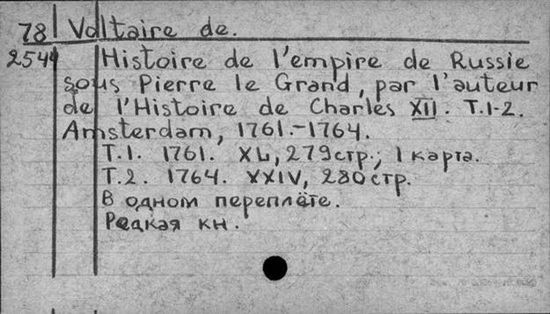 78 Voltaire de.
2544 Histoire de l'empire de Russie
sous Pierre le Grand, par l'auteur
de l'Histoire de Charles XII. T.1-2.
Amsterdam, 1761.-1764.
T.1. 1761. XL, 279стр.; 1 карта.
T.2. 1764. XXIV, 280стр.
В одном переплёте.
Редкая кн.